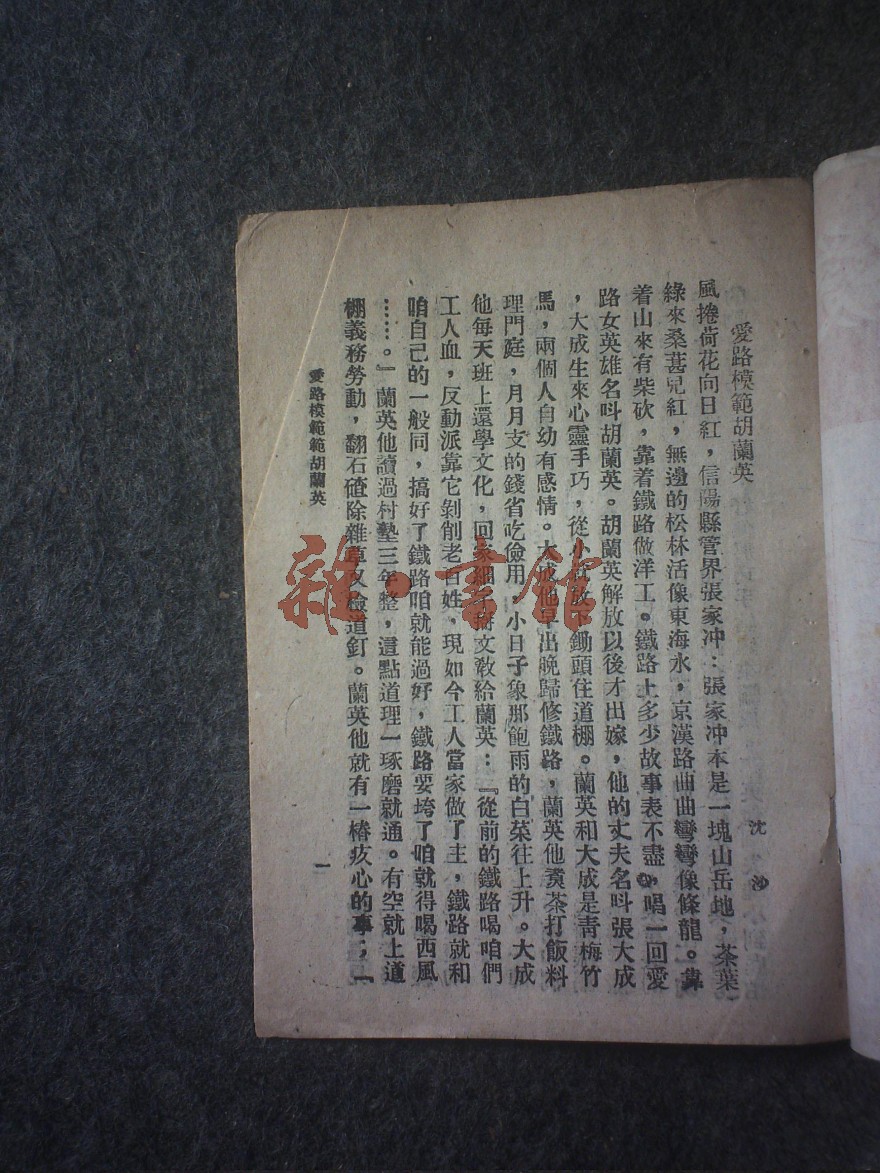 愛路模範胡蘭英
沈沙
風捲荷花向日紅，信陽縣管界張家冲：張家冲本是一塊山岳地，茶葉
綠來桑葚兒紅，無邊的松林活像東海水，京漢路曲曲彎彎像條龍。靠
着山來有柴砍，靠着鐵路做洋工。鐵路上多少故事表不盡，唱一回愛
路女英雄名叫胡蘭英。胡蘭英解放以後才出嫁，他的丈夫名叫張大成
，大成生來心靈手巧，從小就放下鋤頭住道棚。蘭英和大成是青梅竹
馬，兩個人自幼有感情。大成他早出晚歸修鐵路，蘭英他燒茶打飯料
理門庭，月月支的錢省吃儉用，小日子象那飽雨的白菜往上升。大成
他每天班上還學文化，回家細字摳文教給蘭英：『從前的鐵路喝咱們
工人血，反動派靠它剝削老百姓，現如今工人當家做了主，鐵路就和
咱自己的一般同，搞好了鐵路咱就能過好，鐵路要垮了咱就得喝西風
……。』蘭英他讀過村塾三年整，這點道理一琢磨就通。有空就上道
棚義務勞動，翻石碴除雜草又檢道釘。蘭英他就有一樁疚心的事；「
愛路模範範胡蘭英
一
雜·書館